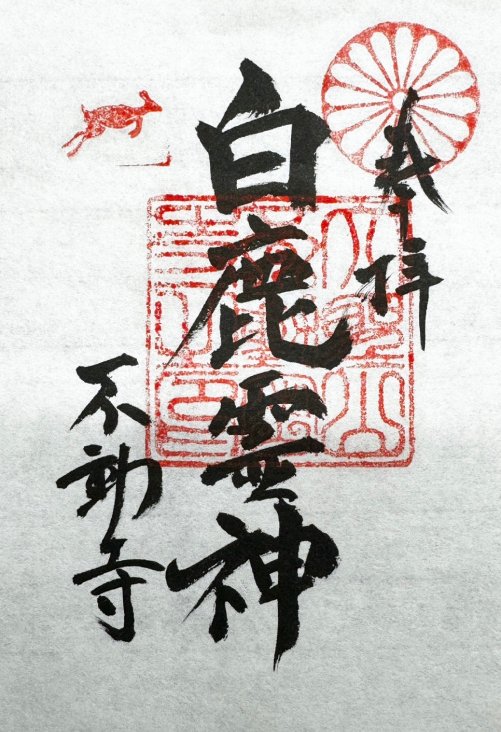 奉拝
白鹿霊神
不動寺